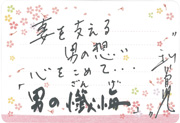 妻を支える
男の想い
心をこめて…
ざんげ
男の懺悔